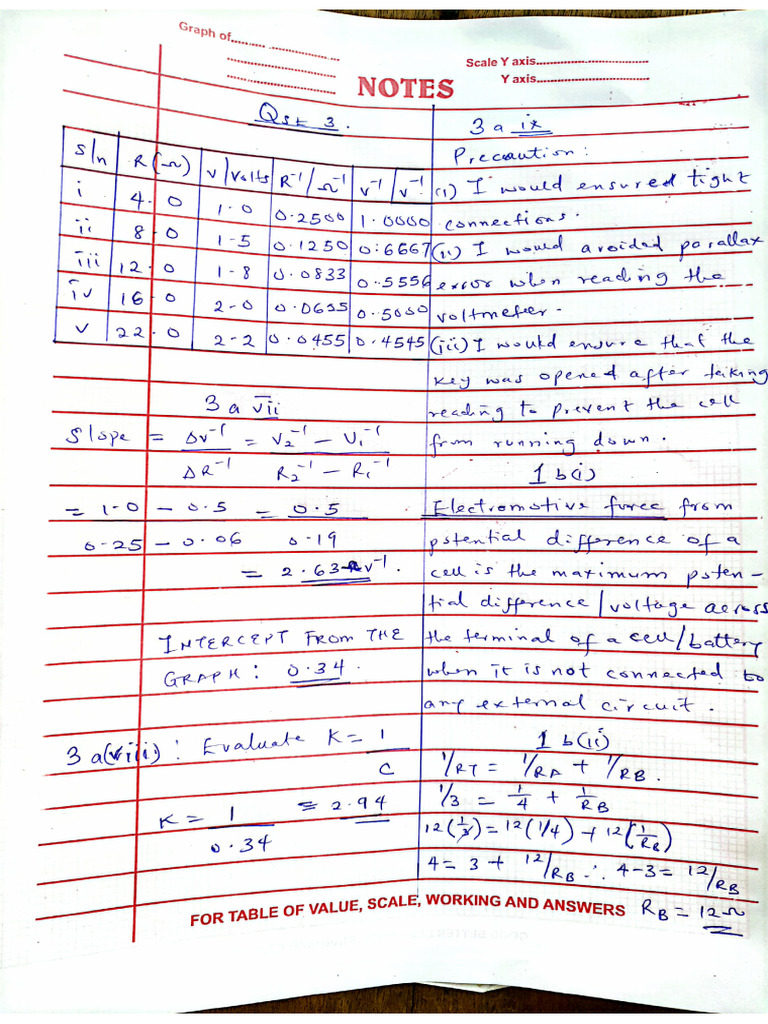 Graph of
Scale Y axis
Y axis
NOTES
Qst 3.
S/n R(Ω) V/Volts R⁻¹/Ω⁻¹ V⁻¹/V⁻¹
i 4.0 1.0 0.2500 1.0000
ii 8.0 1-5 0.1250 0.6667
iii 12.0 1-8 0.0833 0.5556
iv 16.0 2-0 0.0625 0.5000
v 22.0 2-2 0.0455 0.4545
3 a vii
Slope = ΔV⁻¹ = V₂⁻¹ - V₁⁻¹
ΔR⁻¹ R₂⁻¹ - R₁⁻¹
= 1.0 - 0.5 = 0.5
0.25 - 0.06 0.19
= 2.63 V⁻¹.
INTERCEPT FROM THE
GRAPH: 0.34.
3 a(viii): Evaluate K = 1
C
K = 1 = 2.94
0.34
3 a ix
Precaution:
(i) I would ensured tight
connections.
(ii) I would avoided parallax
error when reading the
voltmeter.
(iii) I would ensure that the
key was opened after taking
reading to prevent the cell
from running down.
1 b(i)
Electromotive force from
potential difference of a
cell is the maximum poten-
tial difference/voltage across
the terminal of a cell/battery
when it is not connected to
any external circuit.
1 b(ii)
1/RT = 1/RA + 1/RB.
1/3 = 1/4 + 1/RB
12(1/3) = 12(1/4) + 12(1/RB)
4 = 3 + 12/RB ∴ 4-3 = 12/RB
RB = 12Ω
FOR TABLE OF VALUE, SCALE, WORKING AND ANSWERS